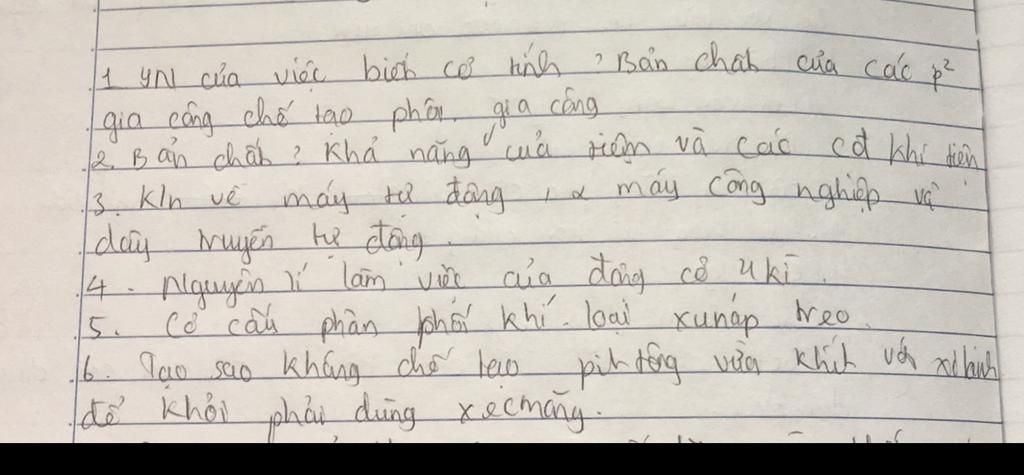 1 YN của việc biết cơ tính, Bản chất của các p²
gia công chế tạo phôi, gia công
2. Bản chất, khả năng của tiện và các cđ khi tiện
3. K/n về máy tự động, máy công nghiệp và
dây truyền tự động.
4. Nguyên lí làm việc của động cơ 4 kì.
5. Cơ cấu phân phối khí loại xupáp treo.
6. Tạo sao không chế tạo pit tông vừa khít với xilanh
để khỏi phải dùng xecmăng.